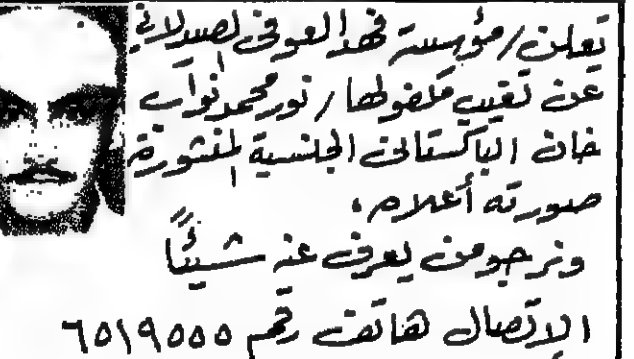 تعلن/مؤسسة فهد العوفى لصيدلاني
عن تغيب مكفولها/نور محمد نواب
خان الباكستانى الجنسية المنشورة
صورته أعلاه،
ونرجو من يعرف عنه شيئًا
الاتصال هاتف رقم ٦٥١٩٥٥٥